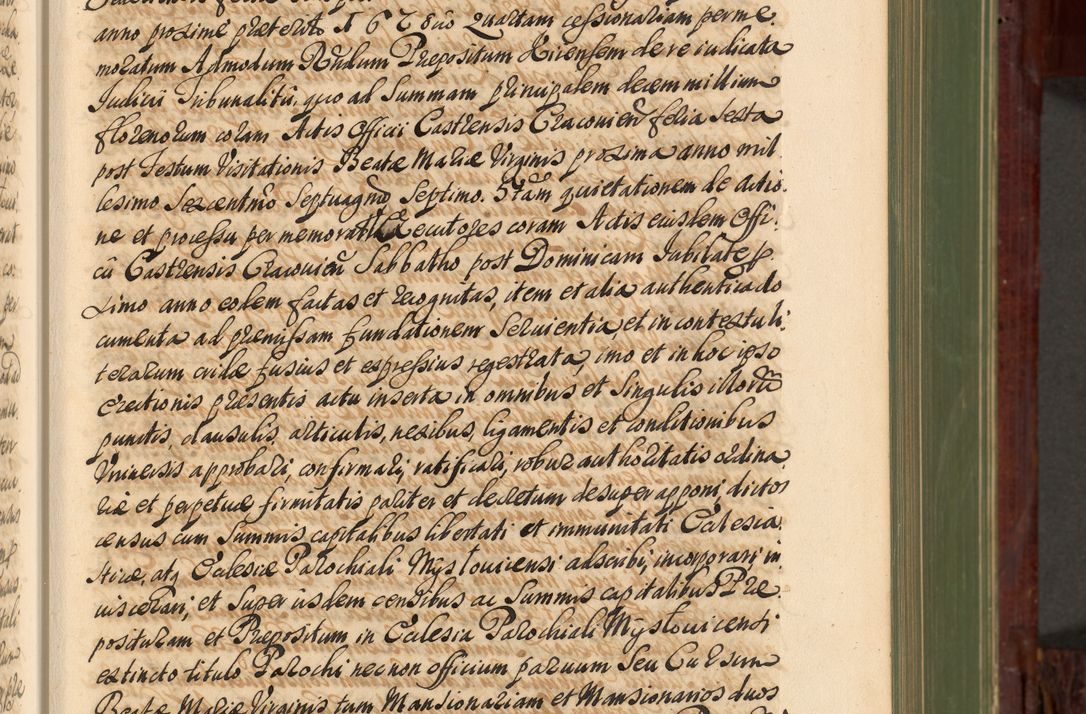 anno proxime præterito 1678uo Quartam cessionariam per me
moratum Admodum Rndum Præpositum Xirensem de re iudicata
Judicii Tribunalitii, quo ad Summam principalem decem millium
florenorum coram Actis Officii Castrensis Cracovien feria Sexta
post Festum Visitationis Beatæ Mariæ Virginis proxima anno mil
lesimo Sexcentmo Septuagmo Septimo. 5tam quietationem de actio
ne et processu per memoratos Executores coram Actis eiusdem Offi:
cii Castrensis Cracovien Sabbatho post Dominicam Jubilate p
ximo anno eodem factas et recognitas, item et alia authentica do
cumenta ad præmissam fundationem Servientia, et in contextu li
terarum eridæ fusius et expressius regestrata, imo et in hoc ipso
Erectionis præsentis actu inserta in omnibus et Singulis illorum
punctis, clausulis, articulis, nexibus, ligamentis et conditionibus
Universis approbari, confirmari, ratificari, robur authoritatis ordina
riæ et perpetuæ firmitatis pariter et decretum desuper apponi, dictos
census cum Summis capitalibus libertati et immunitati Ecclesia
sticæ, atq Ecclesiæ Parochiali Myslovicensi adscribi, incorporari, in
viscerari, et Super iisdem censibus ac Summis capitalibus Præ
posituram et Præpositum in Ecclesia Parochiali Myslovicensi
extincto titulo Parochi nec non officium parvum Seu Cursum
Beatæ Mariæ Virginis tum Mansionariam et Mansionarios duos